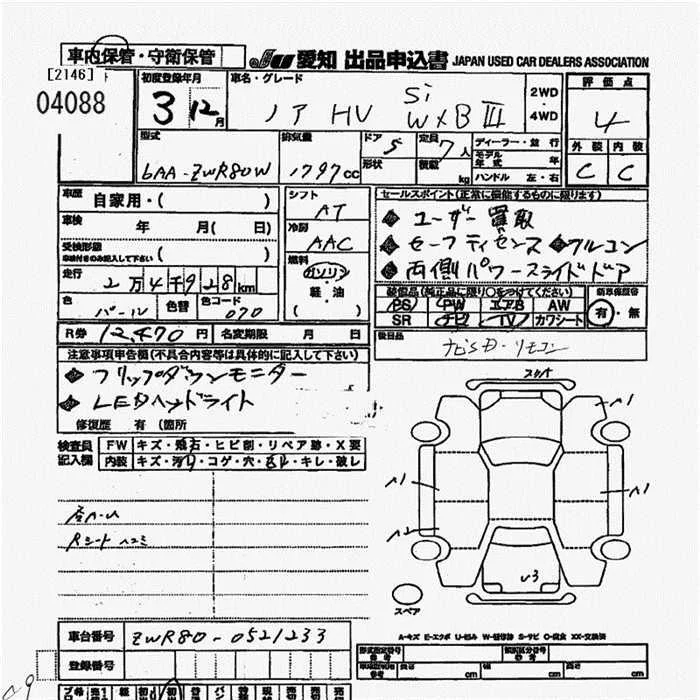 車内保管・守衛保管
JU 愛知 出品申込書 JAPAN USED CAR DEALERS ASSOCIATION
[2146]
04088
初度登録年月
3 12月
車名・グレード
ノア HV Si W×B III
2WD
4WD
評価点
4
型式
6AA-ZWR80W
排気量
1797cc
ドア 5
形状
定員 7人
積載 kg
ディーラー・並行
モデル年式 年
ハンドル 左・右
外装 内装
C C
車歴 自家用・( )
車検 年 月( 日)
受検形態
( )
走行
2万4千928km
色 パール 色替 色コード 070
シフト
AT
冷房
AAC
燃料
ガソリン
軽油
( )
セールスポイント(正常に機能するものに限ります)
◆ ユーザー買取
◆ セーフティセンス ◆フルコン
◆ 両側パワースライドドア
装備品(純正品に限り○をつけてください)
PS PW エアB AW
SR ナビ TV カワシート
新車保証書
有・無
R券 12,470円 名変期限 月 日
後日品
ナビSD・リモコン
注意事項申告欄(不具合内容等は具体的に記入して下さい)
◆ フリップダウンモニター
◆ LEDヘッドライト
修復歴 有 (箇所
検査員記入欄
FW キズ・飛石・ヒビ割・リペア跡・X要
内装 キズ・汚れ・コゲ・穴・ズレ・キレ・破レ
Rシート ヘコミ
スペア
A1
A1
A1
A2
U3
A-キズ E-エクボ U-凹み W-補修跡 S-サビ C-腐食 XX-交換済
車台番号 ZWR80-0521233
登録番号
型式指定番号
類別区分番号
長さ cm 幅 cm 高さ cm